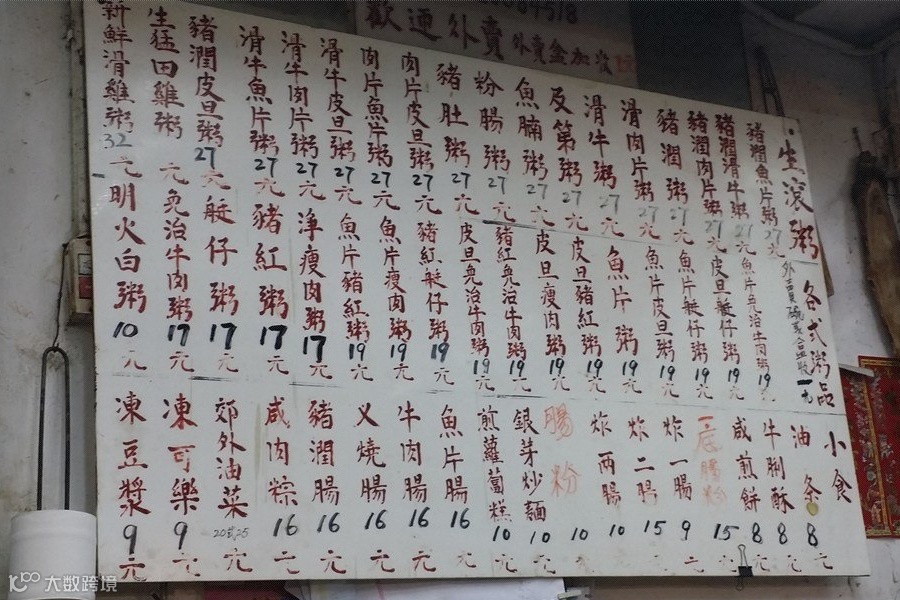 歡迎外賣 外賣盒加收
生滾粥
豬潤魚片粥 27元
豬潤滑牛粥 27元
豬潤肉片粥 27元
豬潤粥 27元
滑肉片粥 27元
滑牛粥 27元
及第粥 27元
魚腩粥 27元
粉腸粥 27元
豬肚粥 27元
肉片皮旦粥 27元
肉片魚片粥 27元
滑牛皮旦粥 27元
滑牛肉片粥 27元
滑牛魚片粥 27元
豬潤皮旦粥 27元
生猛田雞粥 元
新鮮滑雞粥 32元
各式粥品
外賣碗或盒收一元
魚片免治牛肉粥 19元
皮旦艇仔粥 19元
魚片艇仔粥 19元
魚片皮旦粥 19元
魚片粥 19元
皮旦豬紅粥 19元
皮旦瘦肉粥 19元
豬紅免治牛肉粥 19元
皮旦免治牛肉粥 19元
豬紅艇仔粥 19元
魚片瘦肉粥 19元
魚片豬紅粥 19元
淨瘦肉粥 17元
豬紅粥 17元
艇仔粥 17元
免治牛肉粥 17元
明火白粥 10元
小食
油条 8元
牛脷酥 8元
咸煎餅 8元
一底腸粉 15元
炸一腸 9元
炸二腸 15元
炸兩腸 10元
腸粉 10元
銀芽炒麵 10元
煎蘿蔔糕 10元
魚片腸 16元
牛肉腸 16元
义燒腸 16元
豬潤腸 16元
咸肉粽 16元
郊外油菜 20或25元
凍可樂 9元
凍豆漿 9元
大数跨境